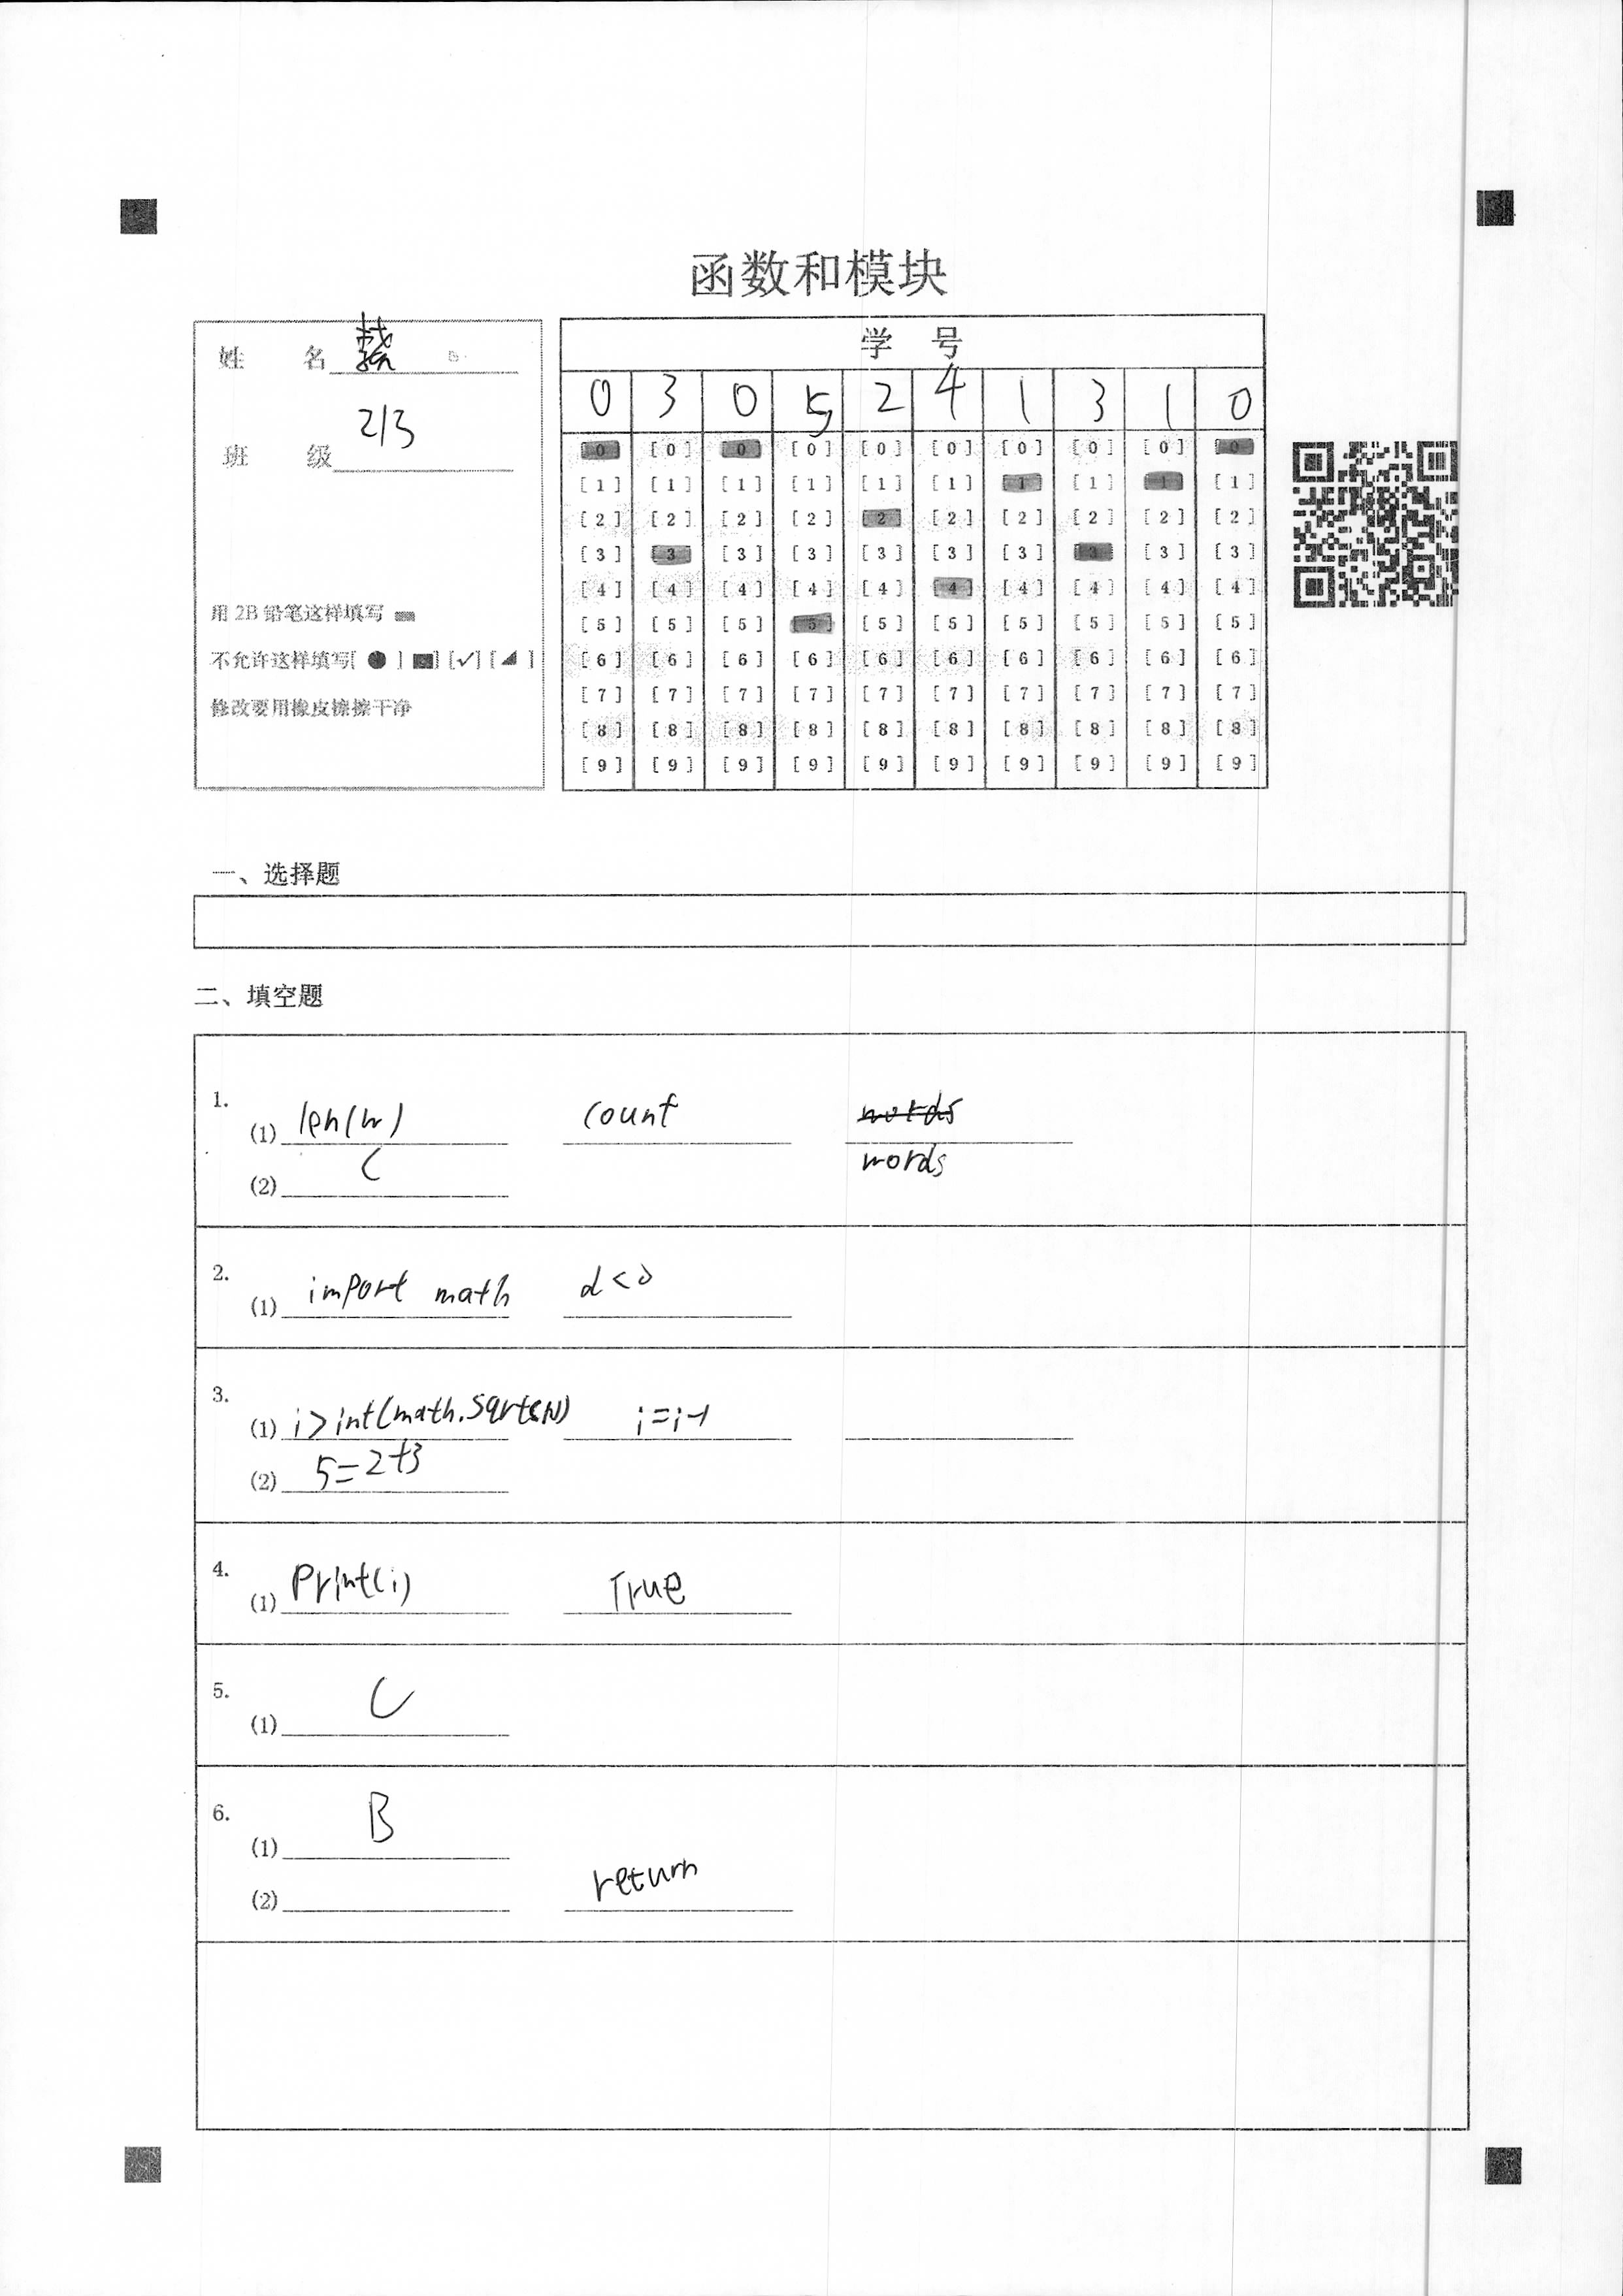 函数和模块
姓 名
班 级 213
用 2B 铅笔这样填写
不允许这样填写[ ● ] [■] [✓] [◢ ]
修改要用橡皮擦擦干净
学 号
0 3 0 5 2 4 1 3 1 0
[0] [0] [0] [0] [0] [0] [0] [0] [0] [0]
[1] [1] [1] [1] [1] [1] [1] [1] [1] [1]
[2] [2] [2] [2] [2] [2] [2] [2] [2] [2]
[3] [3] [3] [3] [3] [3] [3] [3] [3] [3]
[4] [4] [4] [4] [4] [4] [4] [4] [4] [4]
[5] [5] [5] [5] [5] [5] [5] [5] [5] [5]
[6] [6] [6] [6] [6] [6] [6] [6] [6] [6]
[7] [7] [7] [7] [7] [7] [7] [7] [7] [7]
[8] [8] [8] [8] [8] [8] [8] [8] [8] [8]
[9] [9] [9] [9] [9] [9] [9] [9] [9] [9]
一、选择题
二、填空题
1.
(1) len(w) count words
words
(2) C
2.
(1) import math d<0
3.
(1) i>int(math.sqrt(N) i=i-1
(2) 5=2+3
4.
(1) Print(i) True
5.
(1) C
6.
(1) B
(2) return